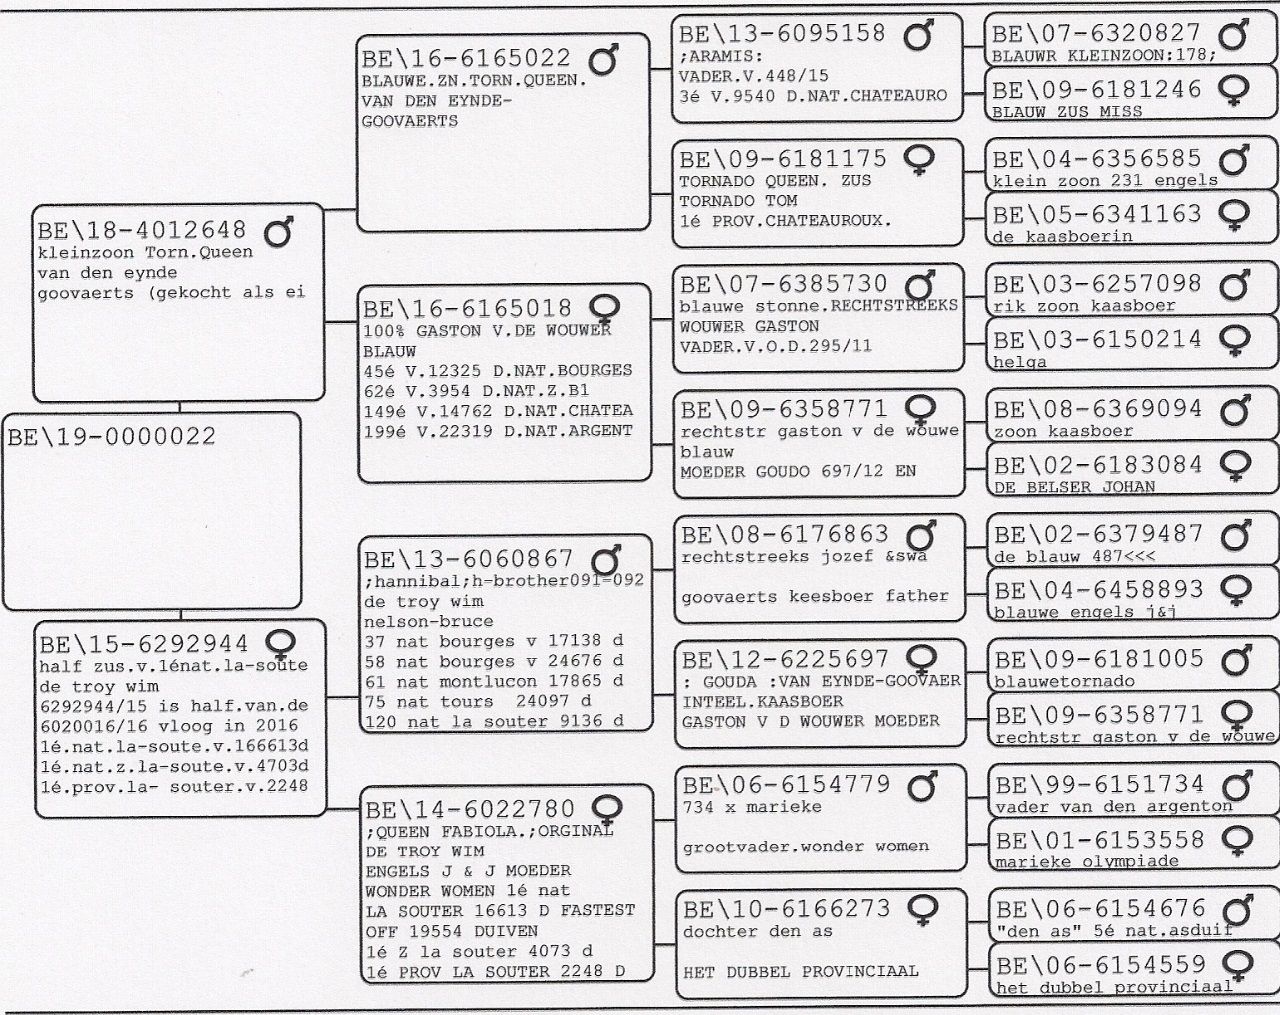 BE\19-0000022
BE\18-4012648 ♂
kleinzoon Torn.Queen
van den eynde
goovaerts (gekocht als ei
BE\15-6292944 ♀
half zus.v.1énat.la-soute
de troy wim
6292944/15 is half.van.de
6020016/16 vloog in 2016
1é.nat.la-soute.v.166613d
1é.nat.z.la-soute.v.4703d
1é.prov.la- souter.v.2248
BE\16-6165022 ♂
BLAUWE.ZN.TORN.QUEEN.
VAN DEN EYNDE-
GOOVAERTS
BE\16-6165018 ♀
100% GASTON V.DE WOUWER
BLAUW
45é V.12325 D.NAT.BOURGES
62é V.3954 D.NAT.Z.B1
149é V.14762 D.NAT.CHATEA
199é V.22319 D.NAT.ARGENT
BE\13-6060867 ♂
;hannibal;h=brother091=092
de troy wim
nelson-bruce
37 nat bourges v 17138 d
58 nat bourges v 24676 d
61 nat montlucon 17865 d
75 nat tours  24097 d
120 nat la souter 9136 d
BE\14-6022780 ♀
;QUEEN FABIOLA.;ORGINAL
DE TROY WIM
ENGELS J & J MOEDER
WONDER WOMEN 1é nat
LA SOUTER 16613 D FASTEST
OFF 19554 DUIVEN
1é Z la souter 4073 d
1é PROV LA SOUTER 2248 D
BE\13-6095158 ♂
;ARAMIS:
VADER.V.448/15
3é V.9540 D.NAT.CHATEAURO
BE\09-6181175 ♀
TORNADO QUEEN. ZUS
TORNADO TOM
1é PROV.CHATEAUROUX.
BE\07-6385730 ♂
blauwe stonne.RECHTSTREEKS
WOUWER GASTON
VADER.V.O.D.295/11
BE\09-6358771 ♀
rechtstr gaston v de wouwe
blauw
MOEDER GOUDO 697/12 EN
BE\08-6176863 ♂
rechtstreeks jozef &swa
goovaerts keesboer father
BE\12-6225697 ♀
: GOUDA :VAN EYNDE-GOOVAER
INTEEL.KAASBOER
GASTON V D WOUWER MOEDER
BE\06-6154779 ♂
734 x marieke
grootvader.wonder women
BE\10-6166273 ♀
dochter den as
HET DUBBEL PROVINCIAAL
BE\07-6320827 ♂
BLAUWR KLEINZOON:178;
BE\09-6181246 ♀
BLAUW ZUS MISS
BE\04-6356585 ♂
klein zoon 231 engels
BE\05-6341163 ♀
de kaasboerin
BE\03-6257098 ♂
rik zoon kaasboer
BE\03-6150214 ♀
helga
BE\08-6369094 ♂
zoon kaasboer
BE\02-6183084 ♀
DE BELSER JOHAN
BE\02-6379487 ♂
de blauw 487<<<
BE\04-6458893 ♀
blauwe engels j&j
BE\09-6181005 ♂
blauwetornado
BE\09-6358771 ♀
rechtstr gaston v de wouwe
BE\99-6151734 ♂
vader van den argenton
BE\01-6153558 ♀
marieke olympiade
BE\06-6154676 ♂
"den as" 5é nat.asduif
BE\06-6154559 ♀
het dubbel provinciaal